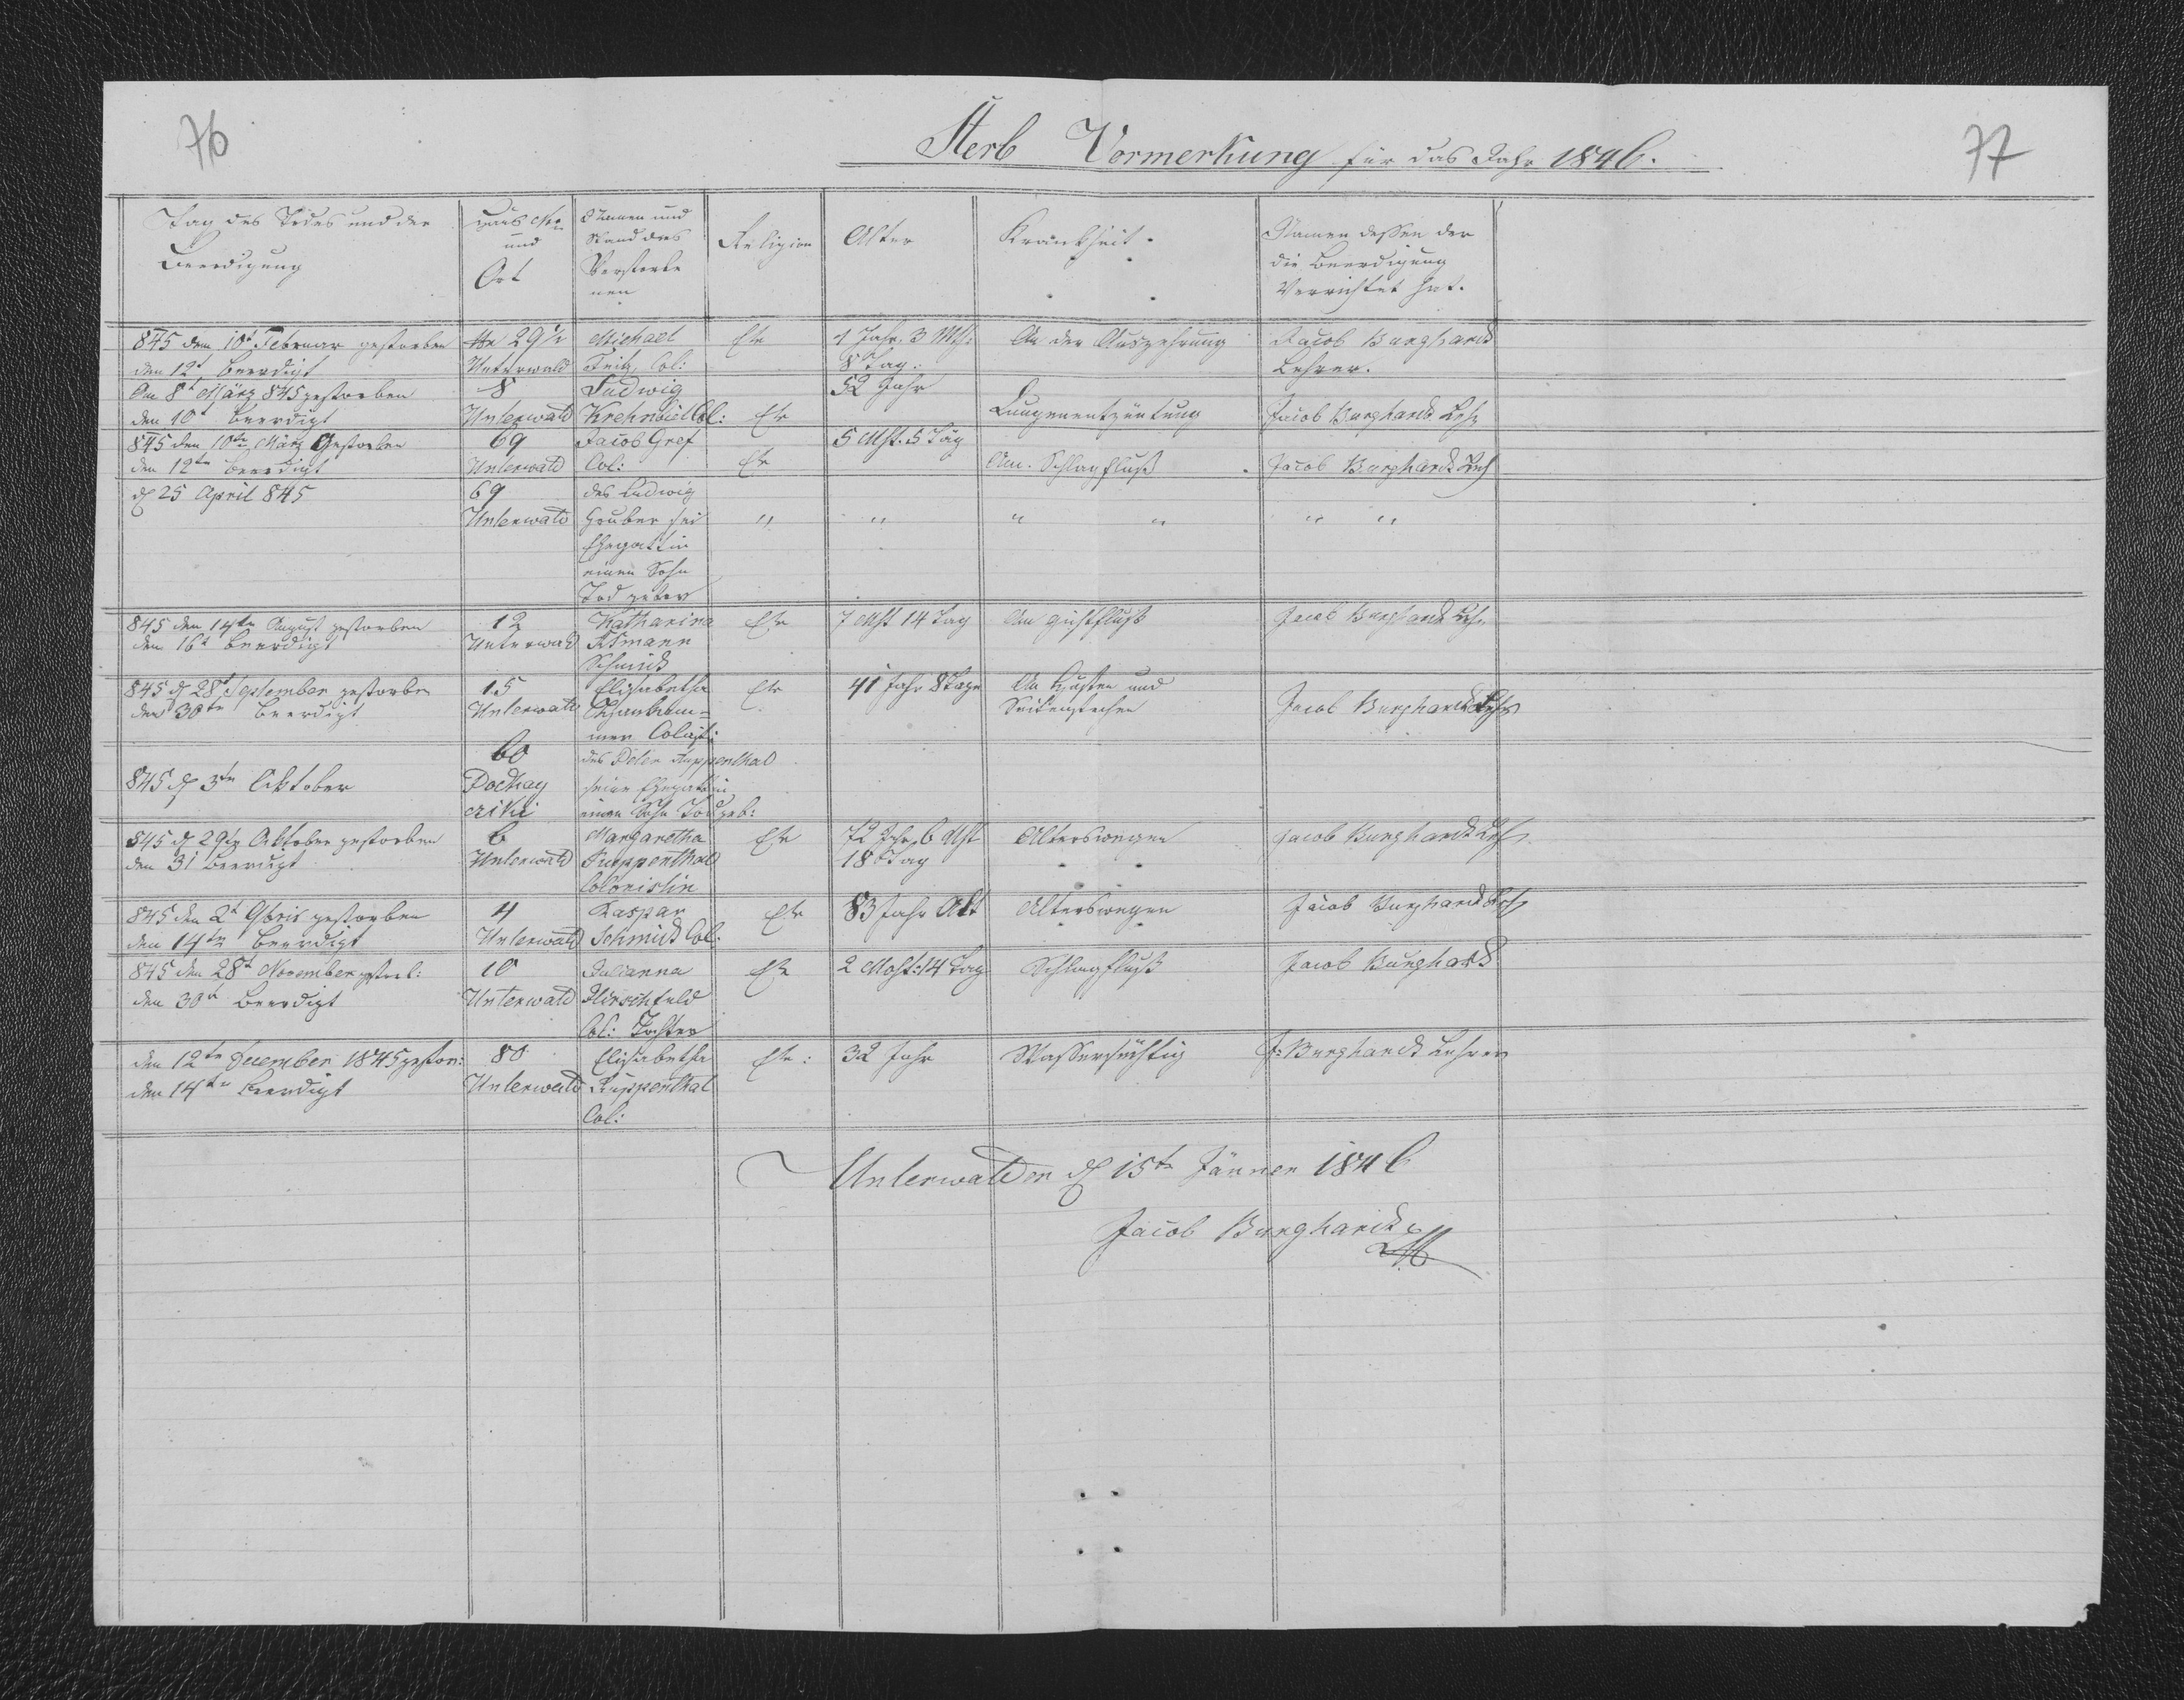 76
Sterb Vormerkung für das Jahr 1846.
77
Tag des Todes und der
Beerdigung
Haus No
und
Ort
Namen und
Stand des
Verstorbe
nen
Religion
Alter
Krankheit.
Namen dessen der
die Beerdigung
Verrichtet hat.
845 den 10t Februar gestorben
den 12t Beerdigt
No 29½
Unterwald
Michael
Col:
1 Jahr. 3 Mth:
8 Tag.
An der Auszehrung
Jacob Burghardt
Lehrer.
Am 8t März 845 gestorben
den 10t Beerdigt
8
Unterwald
Ludwig
Krehnbiel Col:
52 Jahr
Lungenentzüntung
Jacob Burghardt Leh
845 den 10tn März Gestorben
den 12tn Beerdigt
69
Unterwald
Jacob Gref
Col:
5 Mht. 5 Täg
Am. Schlagfluß
Jacob Burghardt Leh
d 25 April 845
69
Unterwald
des Ludwig
Gruber sei
Ehegattin
einen Sohn
Tod gebor
" " " " " "
845 den 14tn August gestorben
den 16t Beerdigt
12
Unterwad
Katharina
Schmidt
7 Mht 14 Tag
An
Jacob Burghardt Leh
845 d 28t September gestorben
den 30tn Beerdigt
15
Unterwald
Elisabetha
mer Colisti
41 Jahr 8 Tage
An Husten und
Seitenstechen
Jacob Burghardt Lehr
845 d 3tn Oktober
60
des Peter Ruppenthal
seine Ehegattin
einen Sohn Todgeb:
845 d 29tn Oktober gestorben
den 31 Beerdigt
6
Unterwald
Margaretha
Ruppenthal
Colonistin
72 Jahr 6 Mht
18 Tag
Alterswegen
Jacob Burghardt Leh
845 den 2t 9bris gestorben
den 14tn Beerdigt
4
Unterwald
Kaspar
Schmidt Col.
83 Jahr Alt
Alterswegen
Jacob Burghardt Leh
845 den 28t November gestorb:
den 30t Beerdigt
10
Unterwald
Julianna
Hirschfeld
Col: Tochter
2 Moht: 14 Tag
Schlagfluß
Jacob Burghardt
den 12tn December 1845 gestor:
den 14tn Beerdigt
80
Unterwald
Elisabetha
Ruppenthal
Col:
32 Jahr
Wassersüchtig
J: Burghardt Lehrer
Unterwalden d 15tn Jänner 1846
Jacob Burghardt